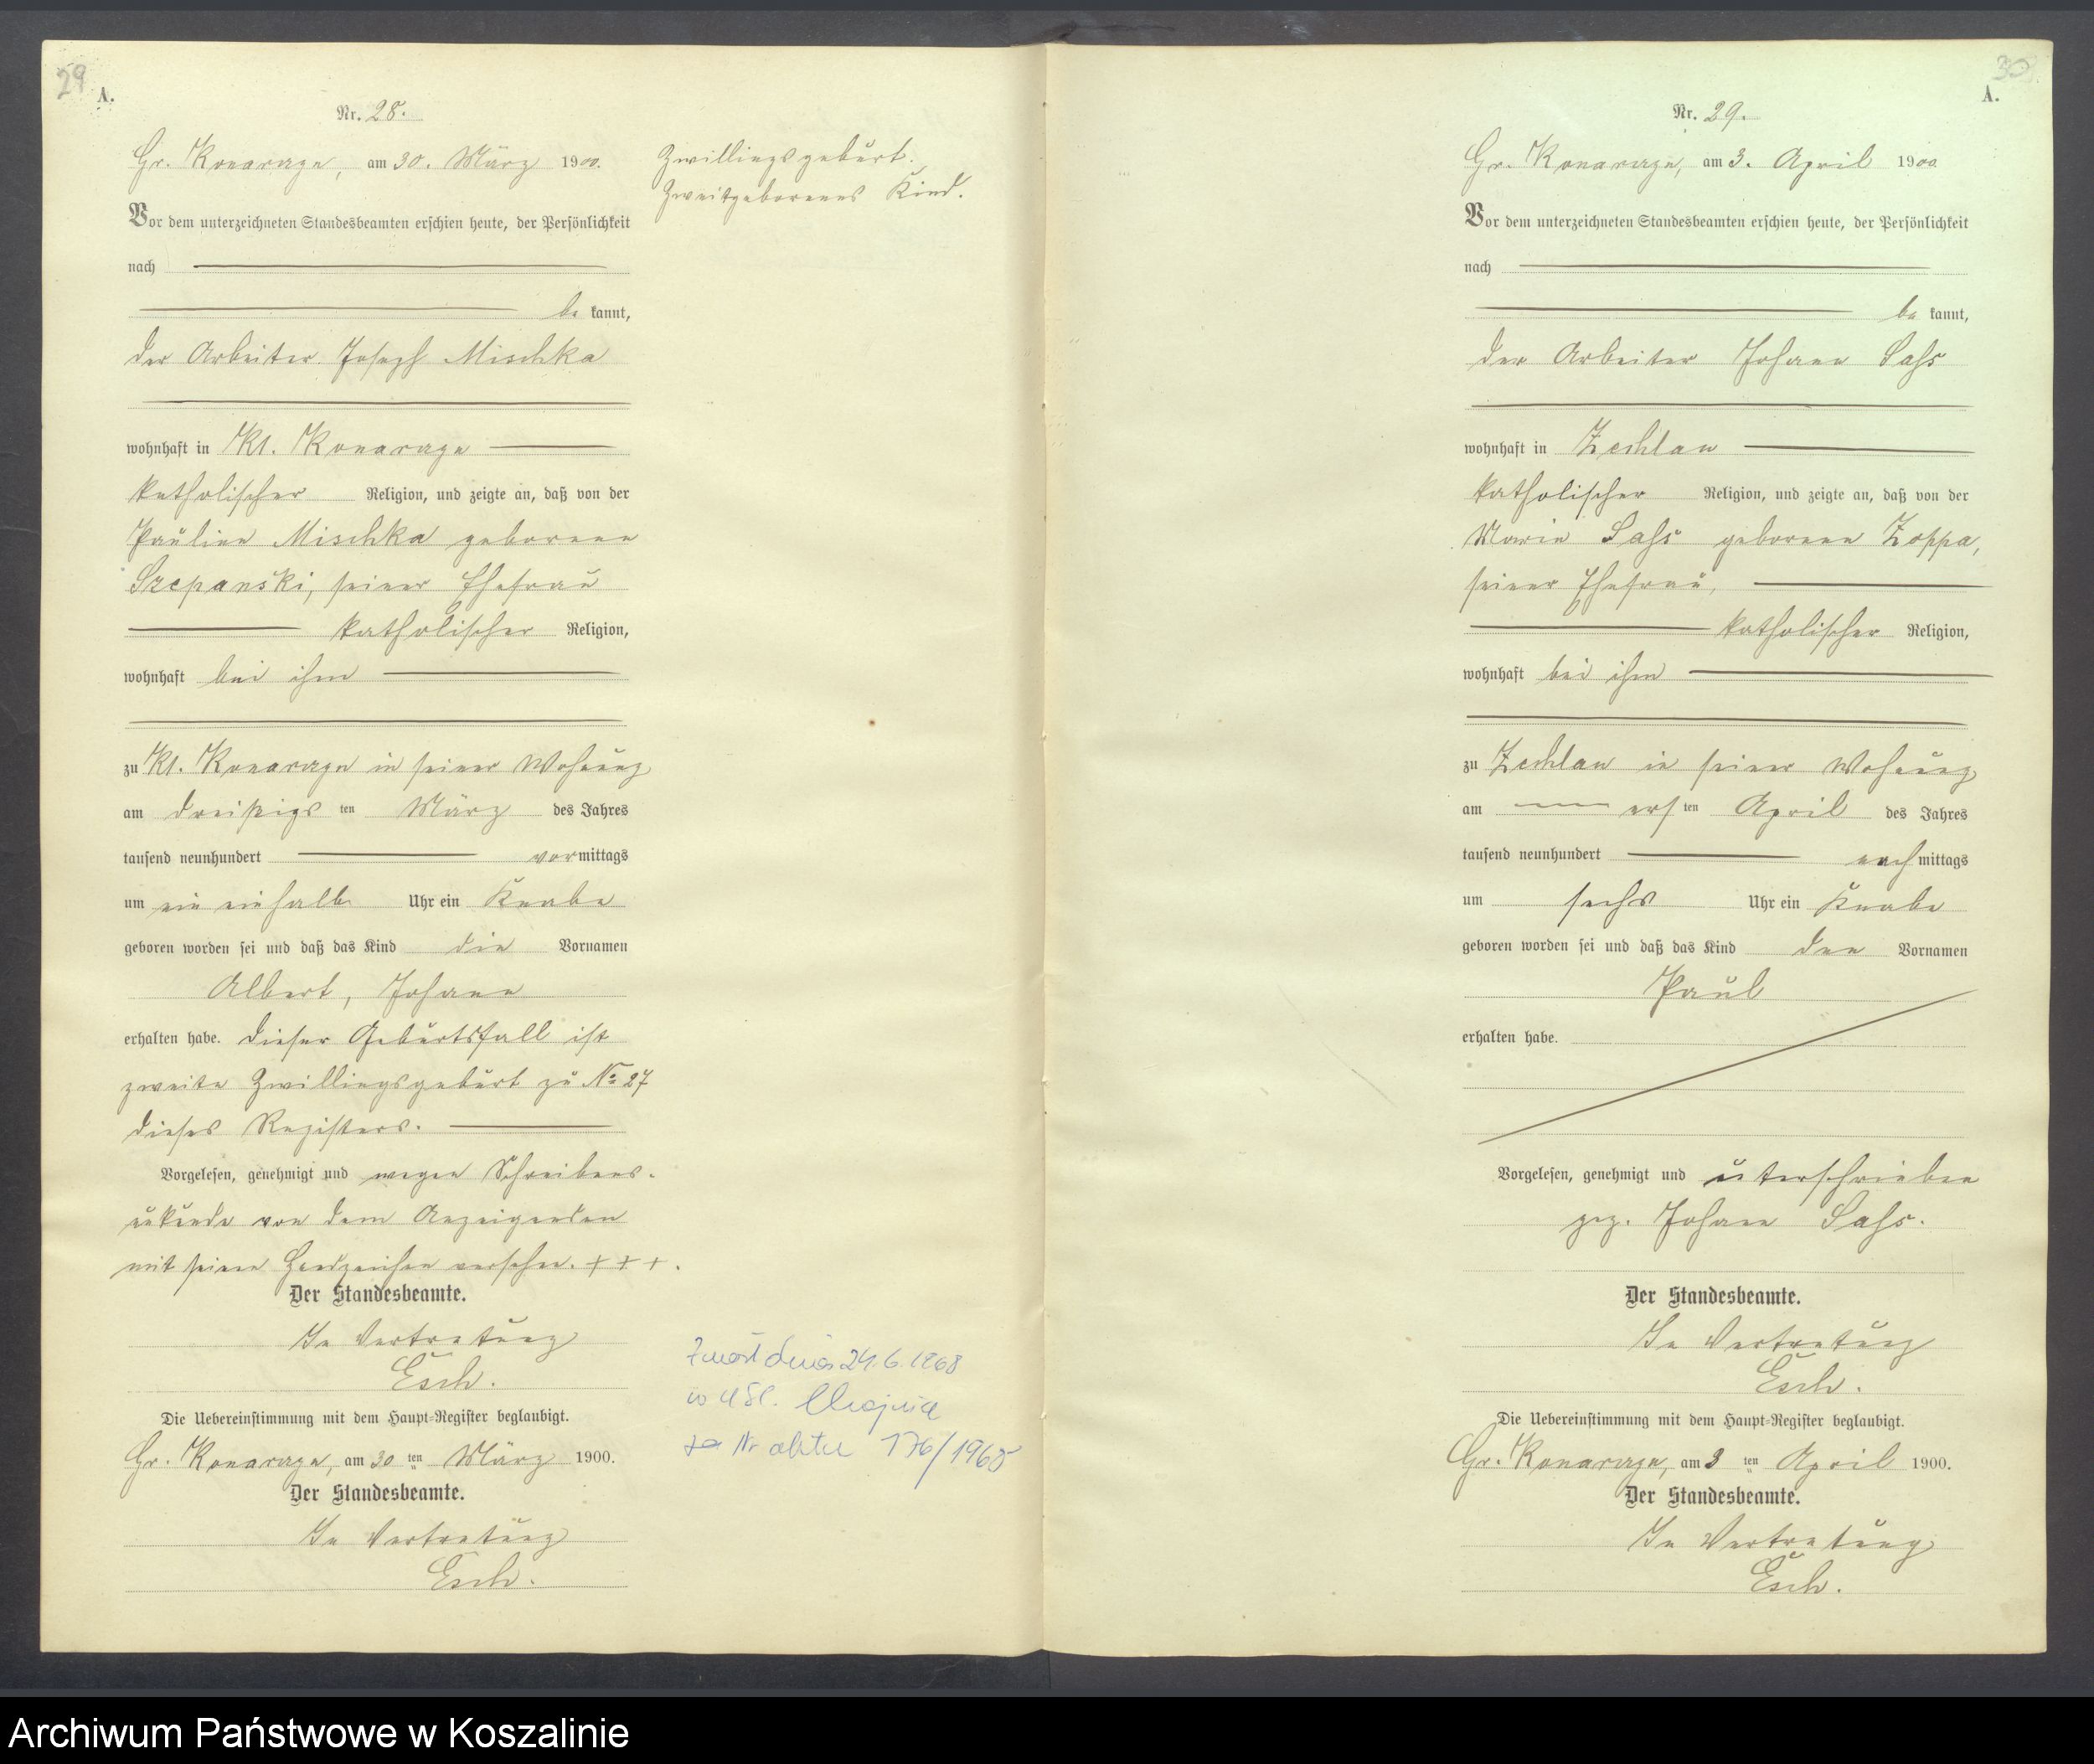 29
A.
Nr. 28.
Gr. Konarczyn, am 30. März 1900.
Vor dem unterzeichneten Standesbeamten erschien heute, der Persönlichkeit
nach
be kannt,
der Arbeiter Joseph Mischka
wohnhaft in Kl. Konarczyn
katholischer Religion, und zeigte an, daß von der
Pauline Mischka geborene
Szepanski, seiner Ehefrau
katholischer Religion,
wohnhaft bei ihm
zu Kl. Konarczyn in seiner Wohnung
am dreißigs ten März des Jahres
tausend neunhundert vormittags
um ein einhalb Uhr ein Knabe
geboren worden sei und daß das Kind die Vornamen
Albert, Johann
erhalten habe. Dieser Geburtsfall ist
zweite Zwillingsgeburt zu No 27
dieses Registers.
Vorgelesen, genehmigt und wegen Schreibens-
unkunde von dem Anzeigenden
mit seinen Handzeichen versehen. + + + .
Der Standesbeamte.
In Vertretung
Esch.
Die Uebereinstimmung mit dem Haupt-Register beglaubigt.
Gr. Konarczyn, am 30 ten März 1900.
Der Standesbeamte.
In Vertretung
Esch.
Zwillingsgeburt.
Zweitgeborenes Kind.
Zmarł dnia 24.6.1968
w USC. Chojnice
za Nr aktu 176/1968
30
A.
Nr. 29.
Gr. Konarczyn, am 3. April 1900
Vor dem unterzeichneten Standesbeamten erschien heute, der Persönlichkeit
nach
be kannt,
der Arbeiter Johann Sass
wohnhaft in Zechlau
katholischer Religion, und zeigte an, daß von der
Marie Sass geborene Zoppa,
seiner Ehefrau,
katholischer Religion,
wohnhaft bei ihm
zu Zechlau in seiner Wohnung
am ersten April des Jahres
tausend neunhundert nachmittags
um sechs Uhr ein Knabe
geboren worden sei und daß das Kind den Vornamen
Paul
erhalten habe.
Vorgelesen, genehmigt und unterschrieben
gez. Johann Sass.
Der Standesbeamte.
In Vertretung
Esch.
Die Uebereinstimmung mit dem Haupt-Register beglaubigt.
Gr. Konarczyn, am 3 ten April 1900.
Der Standesbeamte.
In Vertretung
Esch.
Archiwum Państwowe w Koszalinie